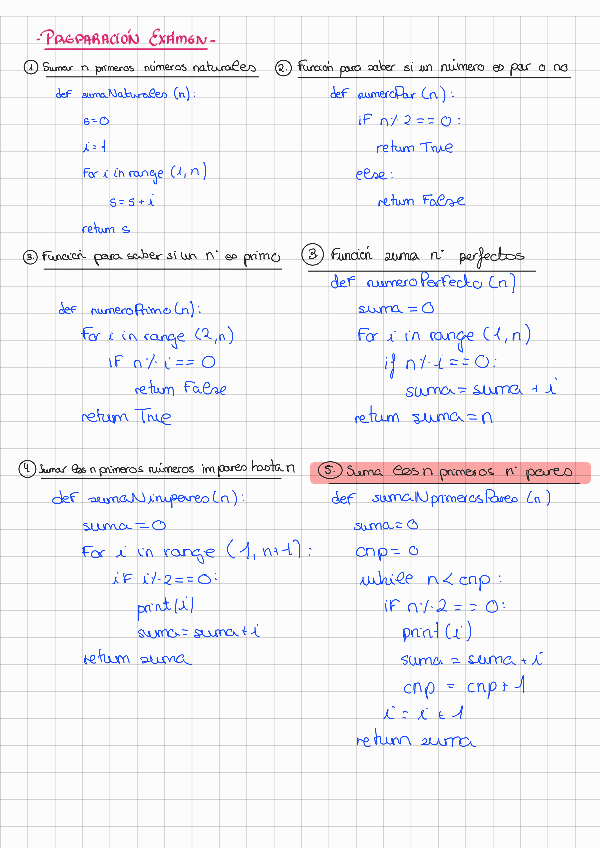 -PREPARACIÓN EXÁMEN-
1 Sumar n primeros números naturales
def sumaNaturales (n):
s=0
i=1
For i in range (1,n)
s=s+i
return s
2. Función para saber si un número es par o no
def numeroPar (n):
iF n% 2 == 0:
return True
else:
return False
3. Función para saber si un n° es primo
def numeroPrimo (n):
For i in range (2,n)
iF n% i == 0
return False
return True
3 Función suma n° perfectos
def numeroPerfecto (n)
suma = 0
For i in range (1,n)
if n% i == 0:
suma = suma + i
return suma = n
4 Sumar los n primeros números impares hasta n
def sumaNimpares (n):
suma = 0
For i in range (1, n+1):
iF i% 2 == 0:
print(i)
suma = suma + i
return suma
5. Suma los n primeros n° pares
def sumaNprimerosPares (n)
suma = 0
cnp = 0
while n < cnp:
iF n% 2 == 0:
print (i)
suma = suma + i
cnp = cnp + 1
i = i + 1
return suma